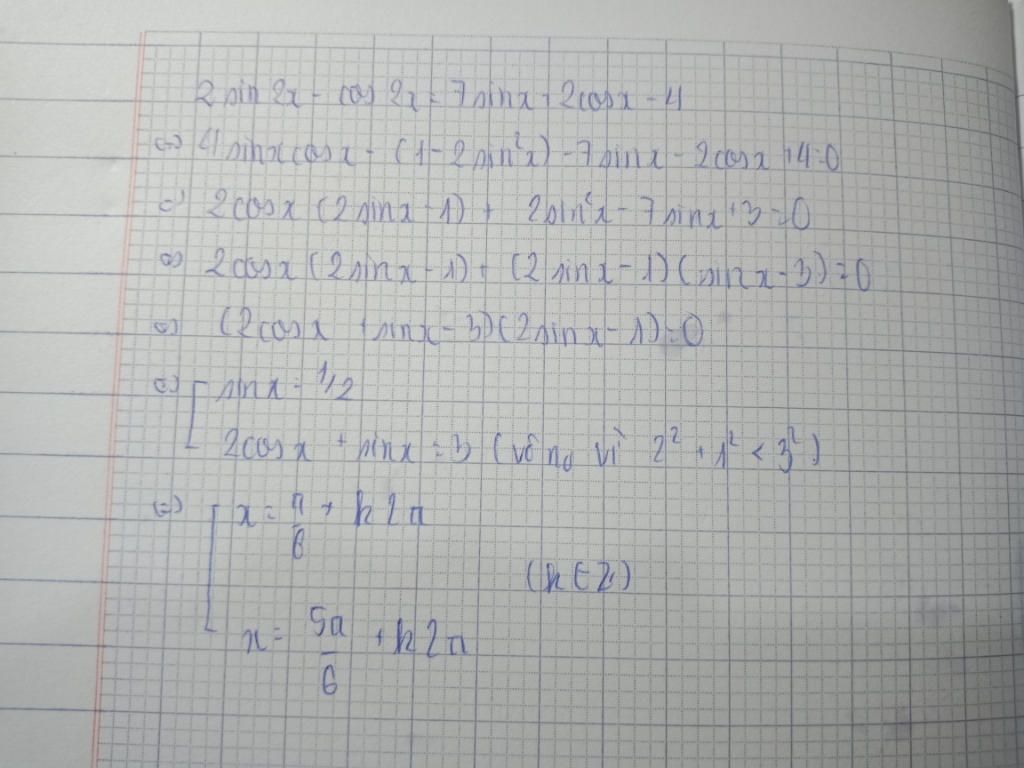 2sin2x - cos2x = 7sinx + 2cosx - 4
⇔ 4sinxcosx - (1 - 2sin²x) - 7sinx - 2cosx + 4 = 0
⇔ 2cosx(2sinx - 1) + 2sin²x - 7sinx + 3 = 0
⇔ 2cosx(2sinx - 1) + (2sinx - 1)(sinx - 3) = 0
⇔ (2cosx + sinx - 3)(2sinx - 1) = 0
⇔ [ sinx = 1/2
2cosx + sinx = 3 (vô no vì 2² + 1² < 3²)
⇔ [ x = π/6 + k2π
(k ∈ Z)
x = 5π/6 + k2π